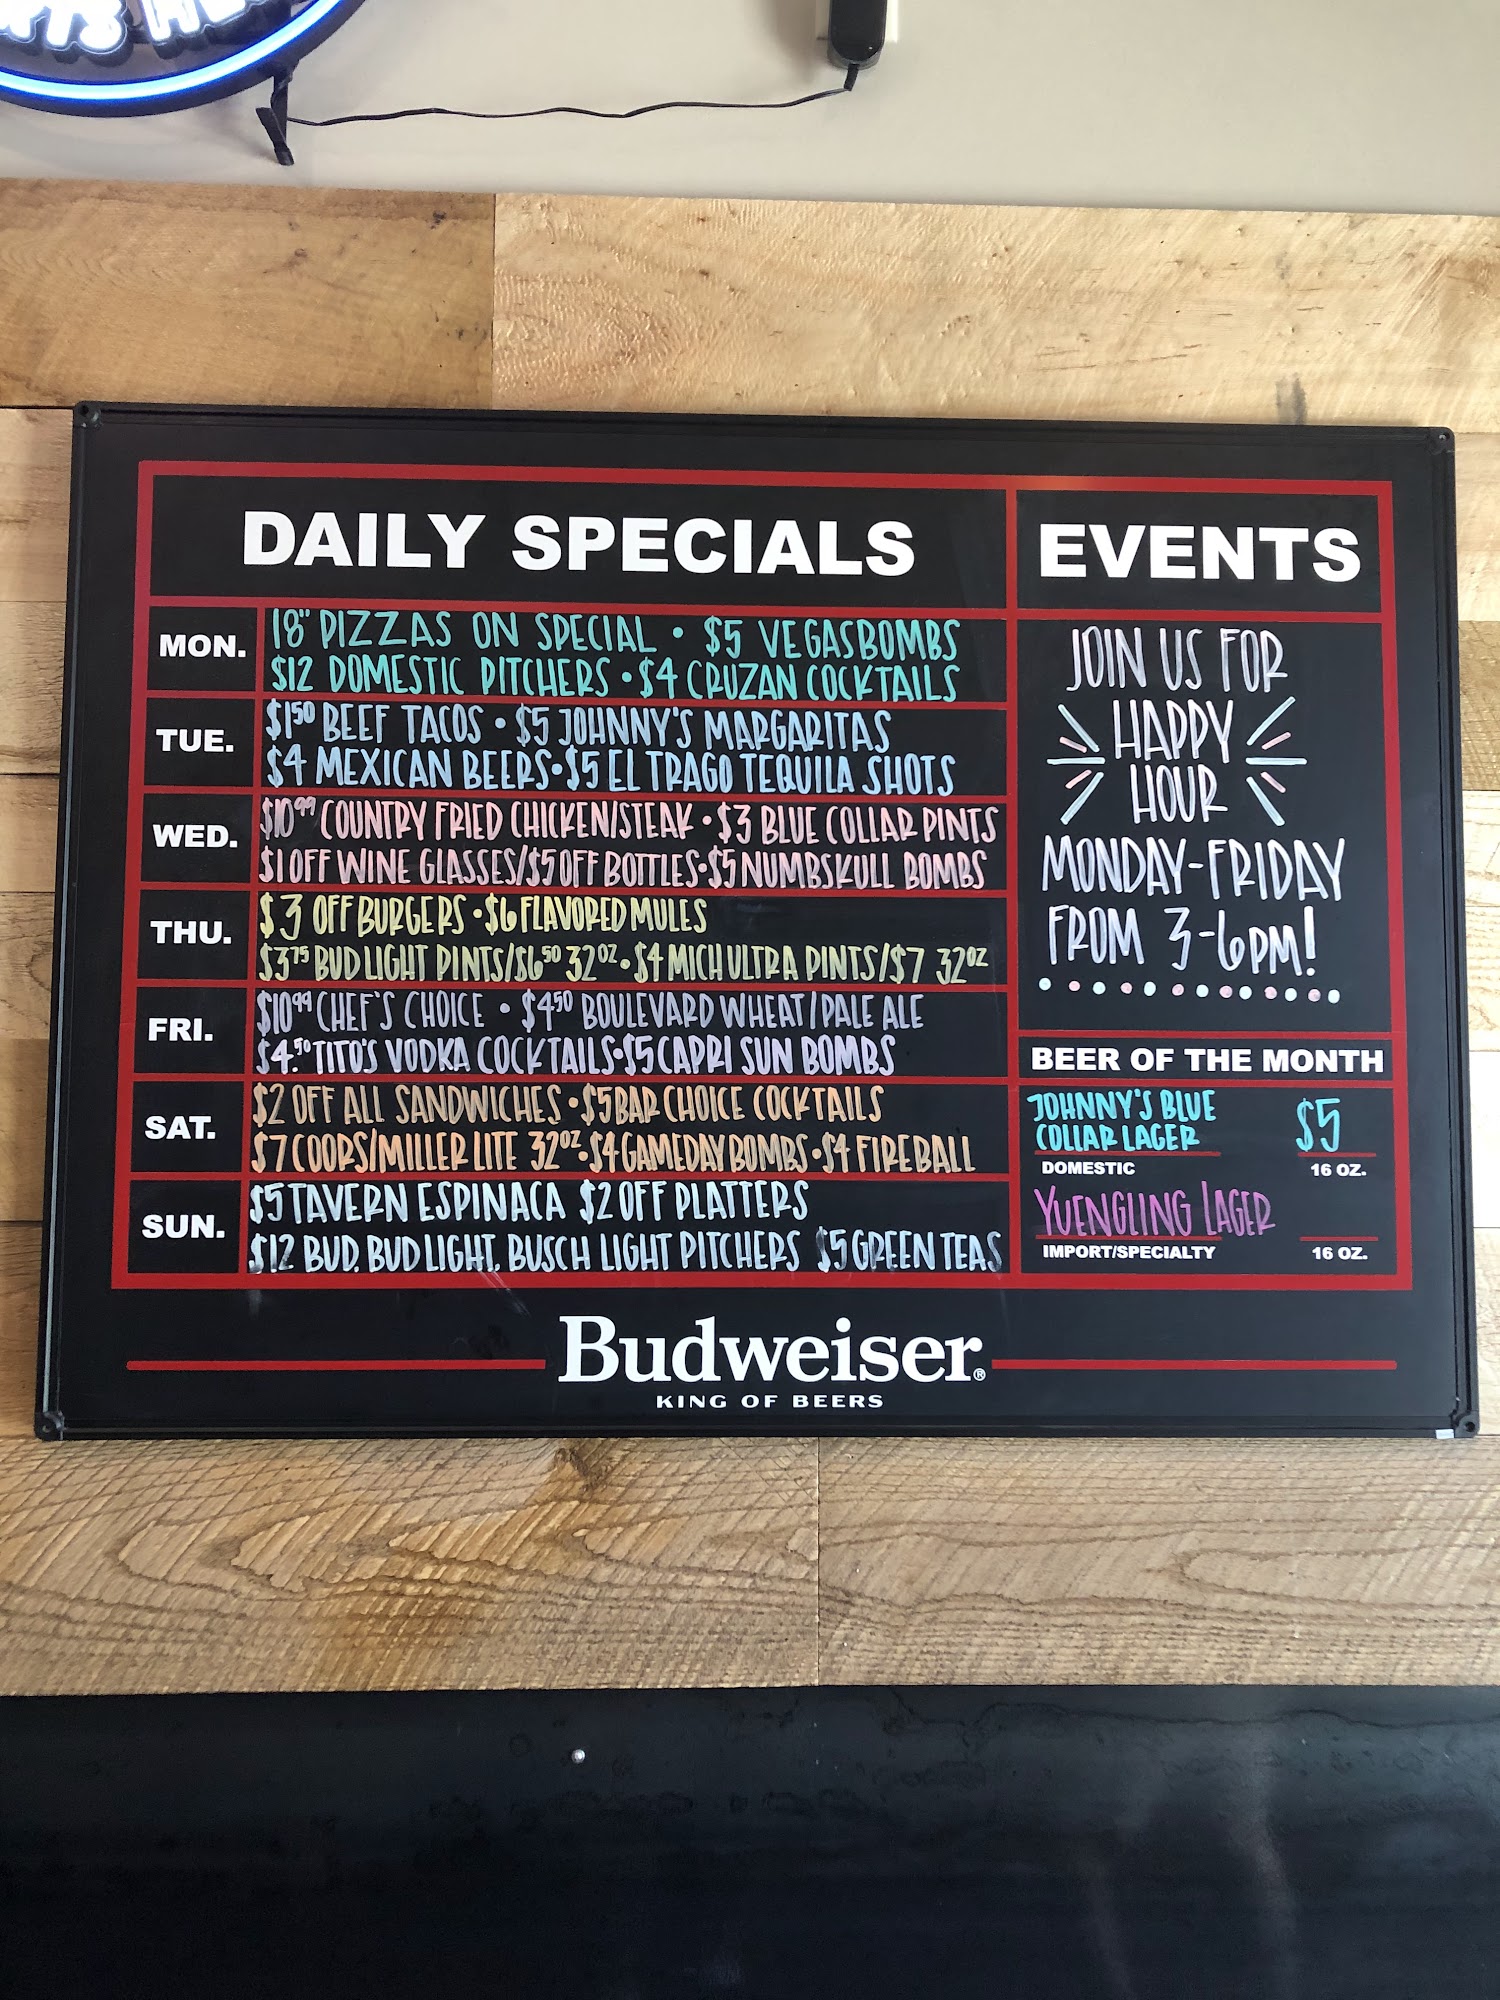 DAILY SPECIALS
MON.
18" PIZZAS ON SPECIAL • $5 VEGASBOMBS
$12 DOMESTIC PITCHERS • $4 CRUZAN COCKTAILS
TUE.
$1⁵⁰ BEEF TACOS • $5 JOHNNY'S MARGARITAS
$4 MEXICAN BEERS • $5 EL TRAGO TEQUILA SHOTS
WED.
$10⁹⁹ COUNTRY FRIED CHICKEN/STEAK • $3 BLUE COLLAR PINTS
$1 OFF WINE GLASSES/$5 OFF BOTTLES • $5 NUMBSKULL BOMBS
THU.
$3 OFF BURGERS • $6 FLAVORED MULES
$3⁷⁵ BUD LIGHT PINTS/$6⁵⁰ 32OZ • $4 MICH ULTRA PINTS/$7 32OZ
FRI.
$10⁹⁹ CHEF'S CHOICE • $4⁵⁰ BOULEVARD WHEAT/PALE ALE
$4.⁵⁰ TITO'S VODKA COCKTAILS • $5 CAPRI SUN BOMBS
SAT.
$2 OFF ALL SANDWICHES • $5 BAR CHOICE COCKTAILS
$7 COORS/MILLER LITE 32OZ • $4 GAMEDAY BOMBS • $4 FIREBALL
SUN.
$5 TAVERN ESPINACA $2 OFF PLATTERS
$12 BUD, BUD LIGHT, BUSCH LIGHT PITCHERS $5 GREEN TEAS
EVENTS
JOIN US FOR
HAPPY
HOUR
MONDAY-FRIDAY
FROM 3-6PM!
BEER OF THE MONTH
JOHNNY'S BLUE
COLLAR LAGER $5
DOMESTIC 16 OZ.
YUENGLING LAGER
IMPORT/SPECIALTY 16 OZ.
Budweiser®
KING OF BEERS